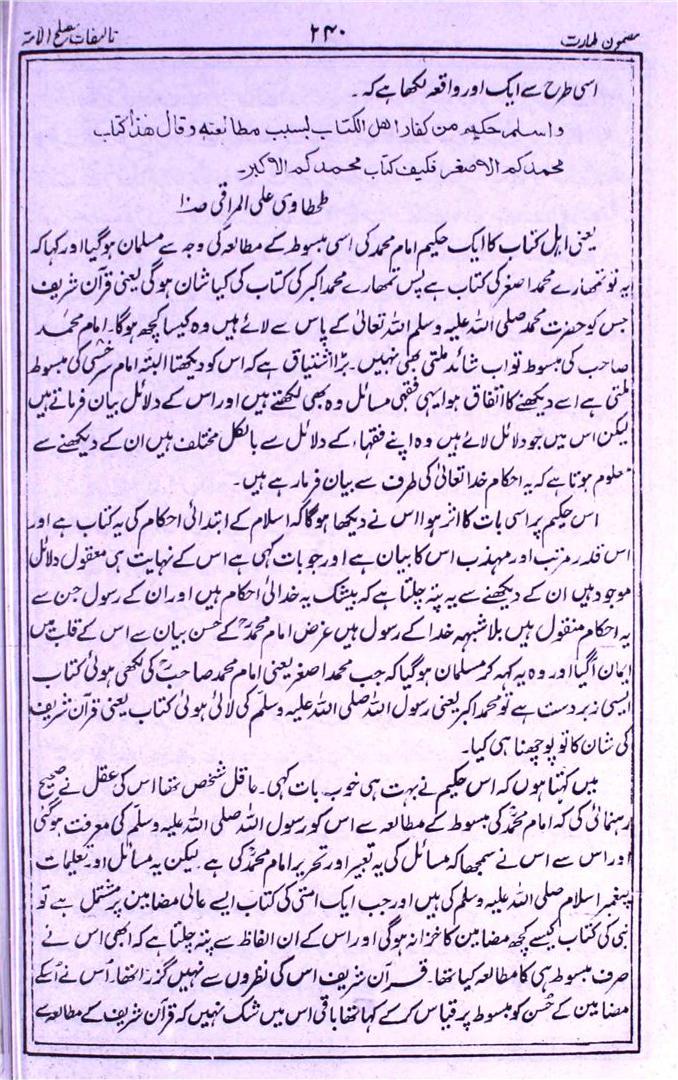 تالیفات مصلح الامۃ ۲۴۰ مضمون طہارت
اسی طرح سے ایک اور واقعہ لکھا ہے کہ۔
واسلم حکیم من کفار اھل الکتاب بسبب مطالعتہ وقال ھذا کتاب
محمدکم الاصغر فکیف کتاب محمدکم الاکبر۔
طحطاوی علی المراقی صـ۱۰
یعنی اہل کتاب کا ایک حکیم امام محمد کی اسی مبسوط کے مطالعہ کی وجہ سے مسلمان ہوگیا اور کہا کہ
یہ تو تمھارے محمد اصغر کی کتاب ہے پس تمھارے محمد اکبر کی کتاب کی کیا شان ہوگی یعنی قرآن شریف
جس کو حضرت محمد صلی اللہ علیہ وسلم اللہ تعالیٰ کے پاس سے لائے ہیں وہ کیسا کچھ ہوگا۔ امام محمد
صاحب کی مبسوط تو اب شائد ملتی بھی نہیں۔ بڑا اشتیاق ہے کہ اس کو دیکھتا البتہ امام سرخسی کی مبسوط
ملتی ہے اسے دیکھنے کا اتفاق ہوا یہی فقہی مسائل وہ بھی لکھتے ہیں اور اس کے دلائل بیان فرماتے ہیں
لیکن اس میں جو دلائل لائے ہیں وہ اپنے فقہاء کے دلائل سے بالکل مختلف ہیں ان کے دیکھنے سے
معلوم ہوتا ہے کہ یہ احکام خدا تعالیٰ کی طرف سے بیان فرما رہے ہیں۔
اس حکیم پر اسی بات کا اثر ہوا اس نے دیکھا ہوگا کہ اسلام کے ابتدائی احکام کی یہ کتاب ہے اور
اس قدر مرتب اور مہذب اس کا بیان ہے اور جو بات کہی ہے اس کے نہایت ہی معقول دلائل
موجود ہیں ان کے دیکھنے سے یہ پتہ چلتا ہے کہ بیشک یہ خدائی احکام ہیں اور ان کے رسول جن سے
یہ احکام منقول ہیں بلاشبہہ خدا کے رسول ہیں غرض امام محمدؒ کے حسن بیان سے اس کے قلب میں
ایمان آگیا اور وہ یہ کہہ کر مسلمان ہوگیا کہ جب محمد اصغر یعنی امام محمد صاحبؒ کی لکھی ہوئی کتاب
ایسی زبردست ہے تو محمد اکبر یعنی رسول اللہ صلی اللہ علیہ وسلم کی لائی ہوئی کتاب یعنی قرآن شریف
کی شان کا تو پوچھنا ہی کیا۔
میں کہتا ہوں کہ اس حکیم نے بہت ہی خوب بات کہی۔ عاقل شخص تھا اس کی عقل نے صحیح
رہنمائی کی کہ امام محمدؒ کی مبسوط کے مطالعہ سے اس کو رسول اللہ صلی اللہ علیہ وسلم کی معرفت ہوگئی
اور اس سے اس نے سمجھا کہ مسائل کی یہ تعبیر اور تحریر امام محمدؒ کی ہے لیکن یہ مسائل اور تعلیمات
پیغمبر اسلام صلی اللہ علیہ وسلم کی ہیں اور جب ایک امتی کی کتاب ایسے عالی مضامین پر مشتمل ہے تو
نبی کی کتاب کیسے کچھ مضامین کا خزانہ ہوگی اور اس کے ان الفاظ سے پتہ چلتا ہے کہ ابھی اس نے
صرف مبسوط ہی کا مطالعہ کیا تھا۔ قرآن شریف اس کی نظروں سے نہیں گزرا تھا۔ اُس نے اُسکے
مضامین کے حُسن کو مبسوط پر قیاس کرکے کہا تھا باقی اس میں شک نہیں کہ قرآن شریف کے مطالعہ سے